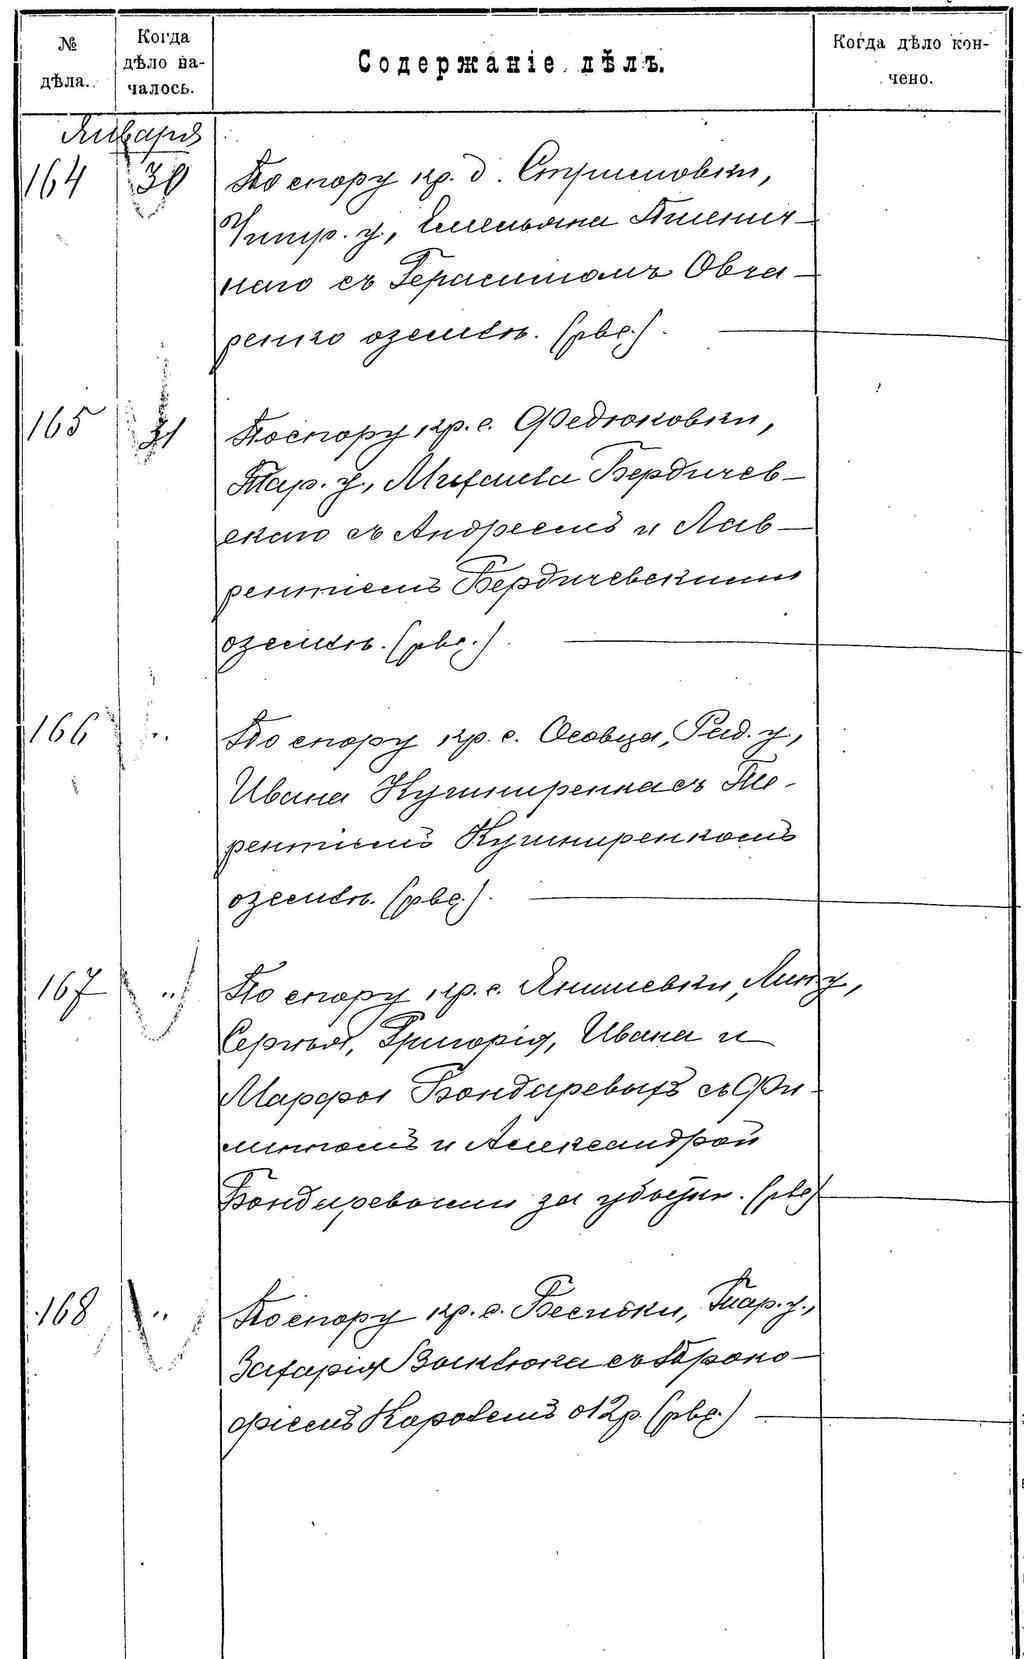 № дѣла.
Когда дѣло началось.
Содержаніе дѣлъ.
Когда дѣло кончено.
Января
164 30 По спору кр. д. Стримовки,
у., Емельяна Пшенич-
наго съ Герасимомъ Овча-
ренко о землѣ.
165 31 По спору кр. с. Федюковки,
Тар. у., Михаила Бердичев-
скаго съ Андреемъ и Лав-
рентіемъ Бердичевскими
о землѣ.
166 " По спору кр. с. Осовца, Рад. у.,
Ивана Кушниренка съ Те-
рентіемъ Кушниренкомъ
о землѣ.
167 " По спору кр. с. Янишевки, Лип. у,
Сергѣя, Григорія, Ивана и
Марфы Бондаревыхъ съ Фи-
липпомъ и Александрой
Бондаревыми за убытки.
168 " По спору кр. с. Бесѣдки, Тар. у.,
Захарія съ Проко-
фіемъ о 12 р.